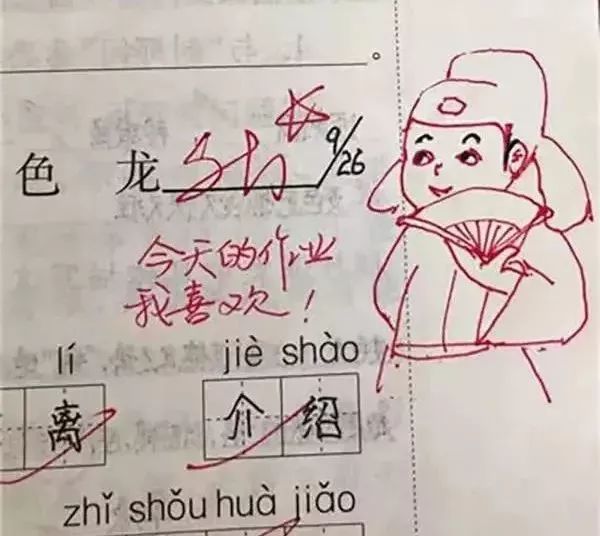 。
色 龙 9/26
今天的作业
我喜欢！
lí jiè shào
离 介绍
zhǐ shǒu huà jiǎo